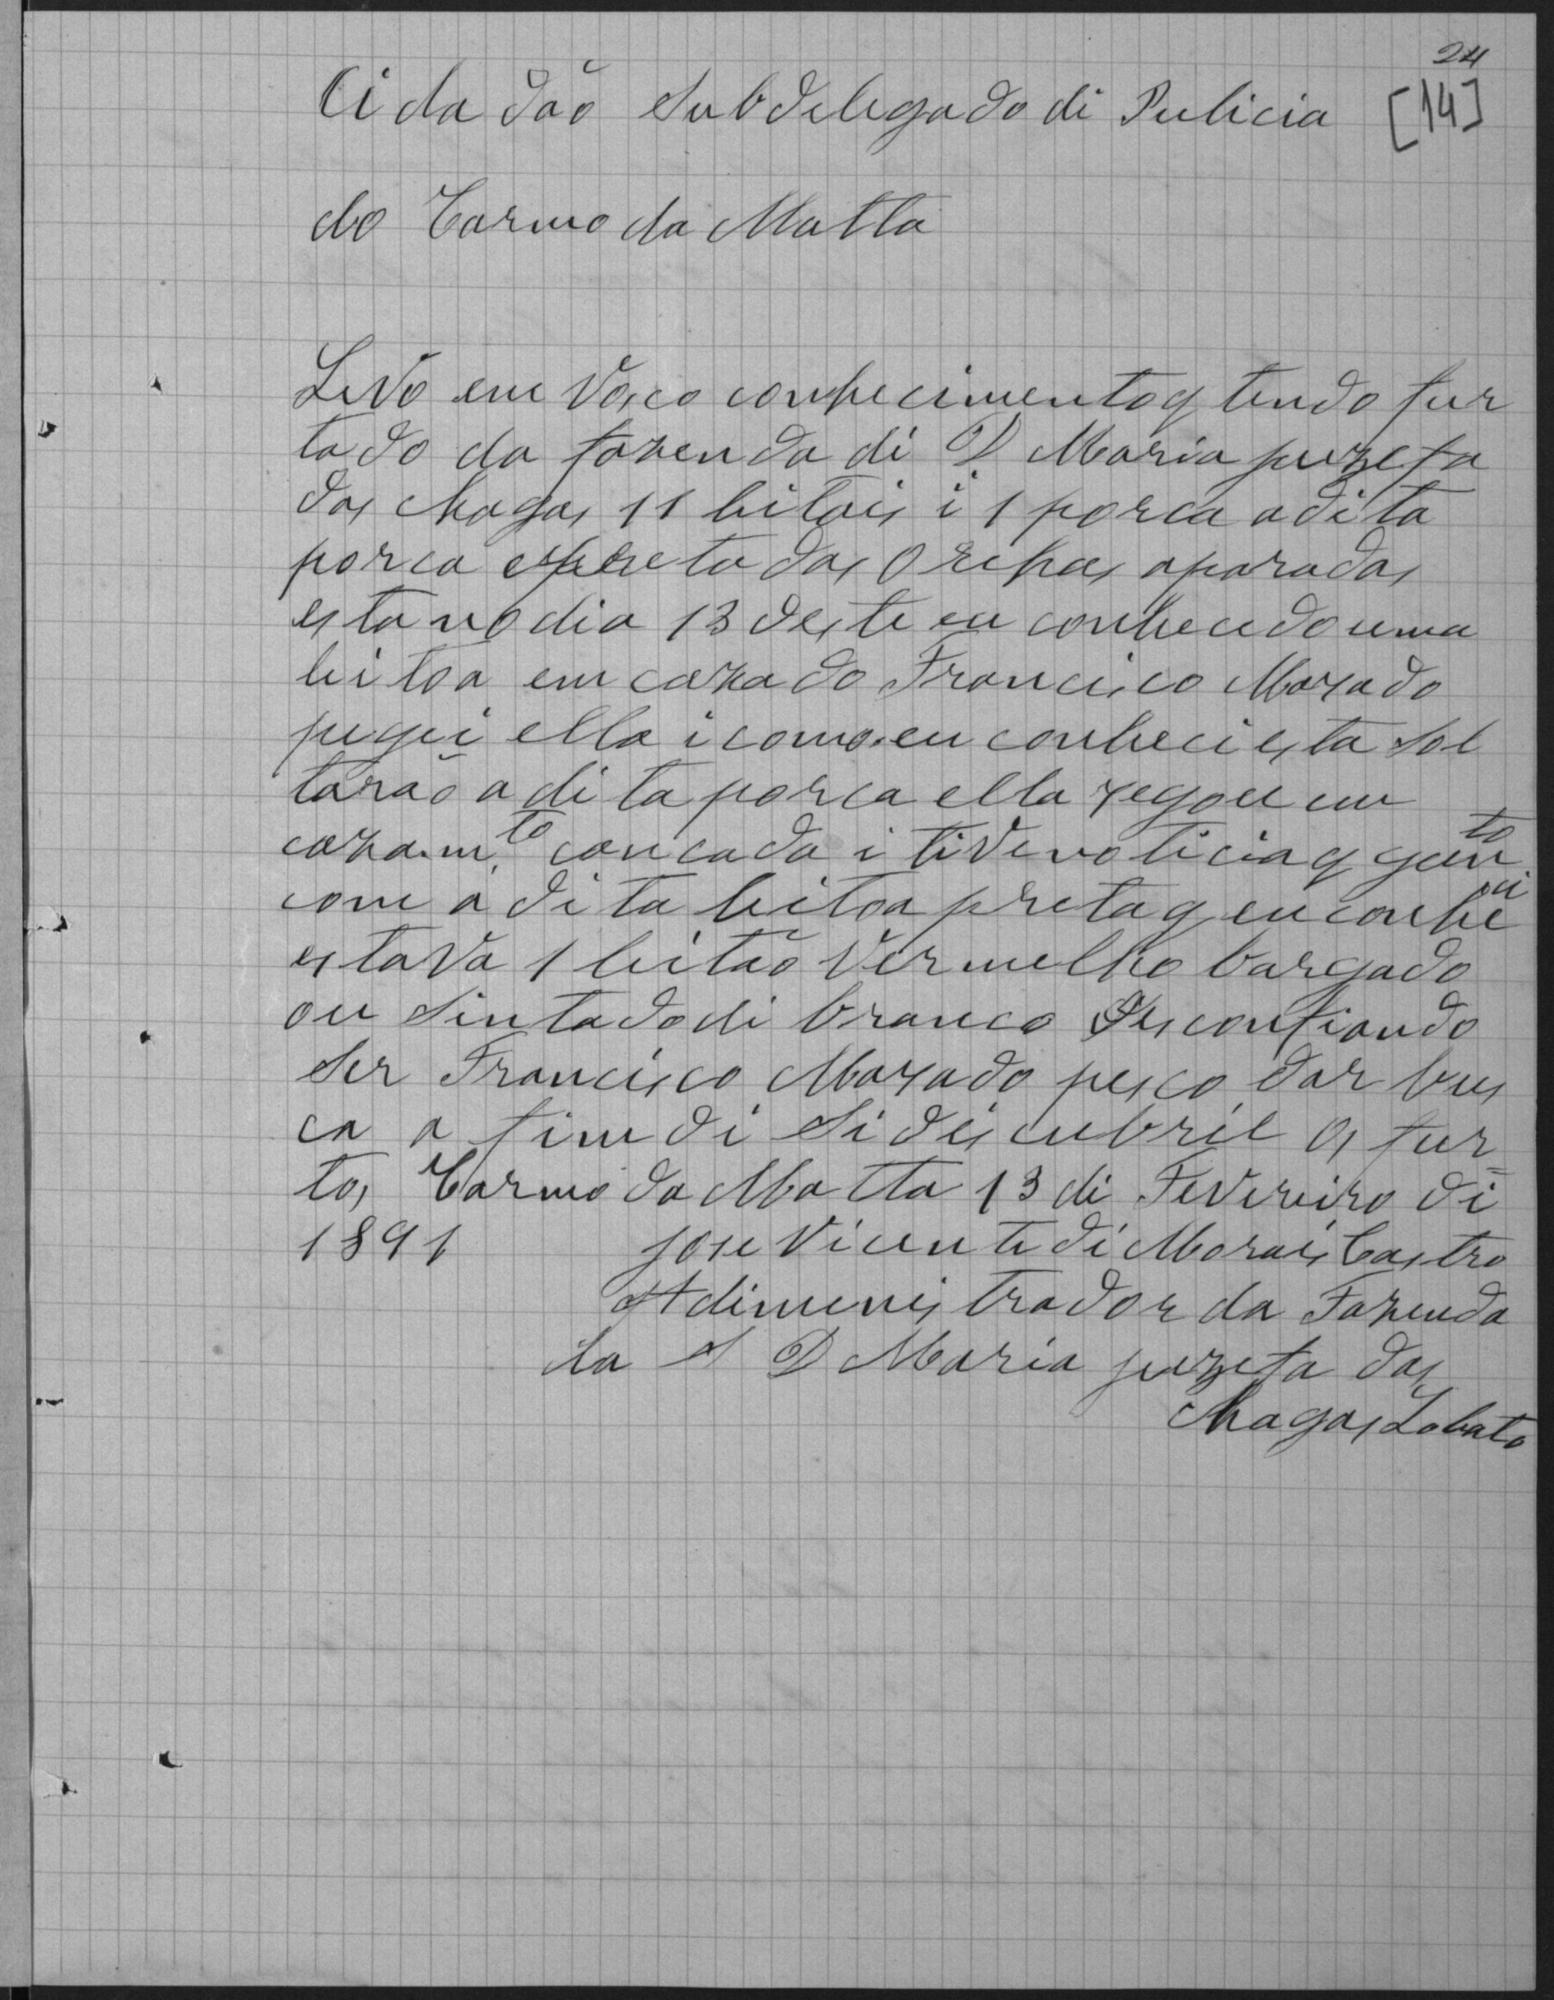 24
[14]
Cidadão Subdelegado di Pulicia
do Carmo da Matta
Levo em Vosco conhecimento q tendo fur
tado da fazenda di D Maria juzefa
das Chagas 11 leitois i 1 porca a dita
porca é preta das Orelhas aparadas
esta no dia 13 deste eu conhecendo uma
leitoa em caza do Francisco Maxado
peguei ella i como eu conheci esta sol
tarão a dita porca ella xegou em
caza m.to cancada i tive noticia q junto
com a dita leitoa preta q eu conheci
estava 1 leitão Vermelho bargado
ou Sintado di branco Desconfiando
Ser Francisco Maxado pesco dar bus
ca a fim di Si discubril os fur
tos Carmo da Matta 13 di Fevereiro di
1891 jose Vicente di Morais Castro
Adimenistrador da Fazenda
da S D Maria juzefa das
Chagas Lobato